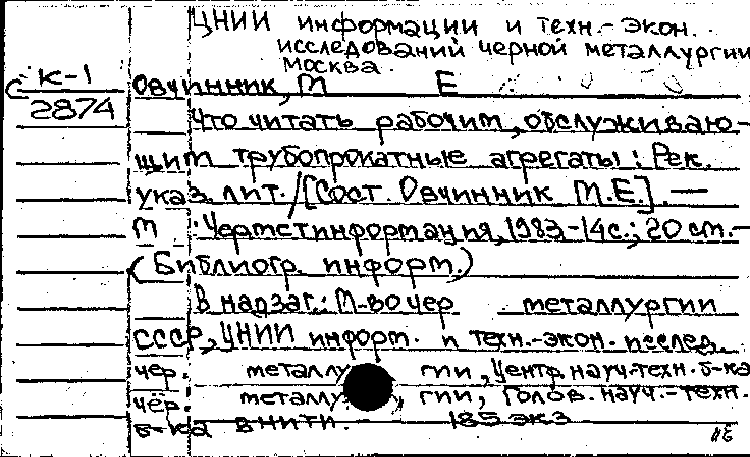 ЦНИИ информации и техн.-экон.
исследований черной металлургии
Москва.
С К-1
2874
Овчинник, М Е
Что читать рабочим, обслуживаю-
щим трубопрокатные агрегаты: Рек.
указ. лит. / [Сост. Овчинник М.Е.]. —
М : Черметинформация, 1983.-14с.; 20 см.-
(Библиогр. информ.)
В надзаг.: М-во чер металлургии
СССР, ЦНИИ информ. и техн.-экон. исслед.
чер. металлу гии, Центр. науч.-техн. б-ка
чёр. металлу , гии, Голов. науч.-техн.
б-ка ВНИТИ. - 185 экз